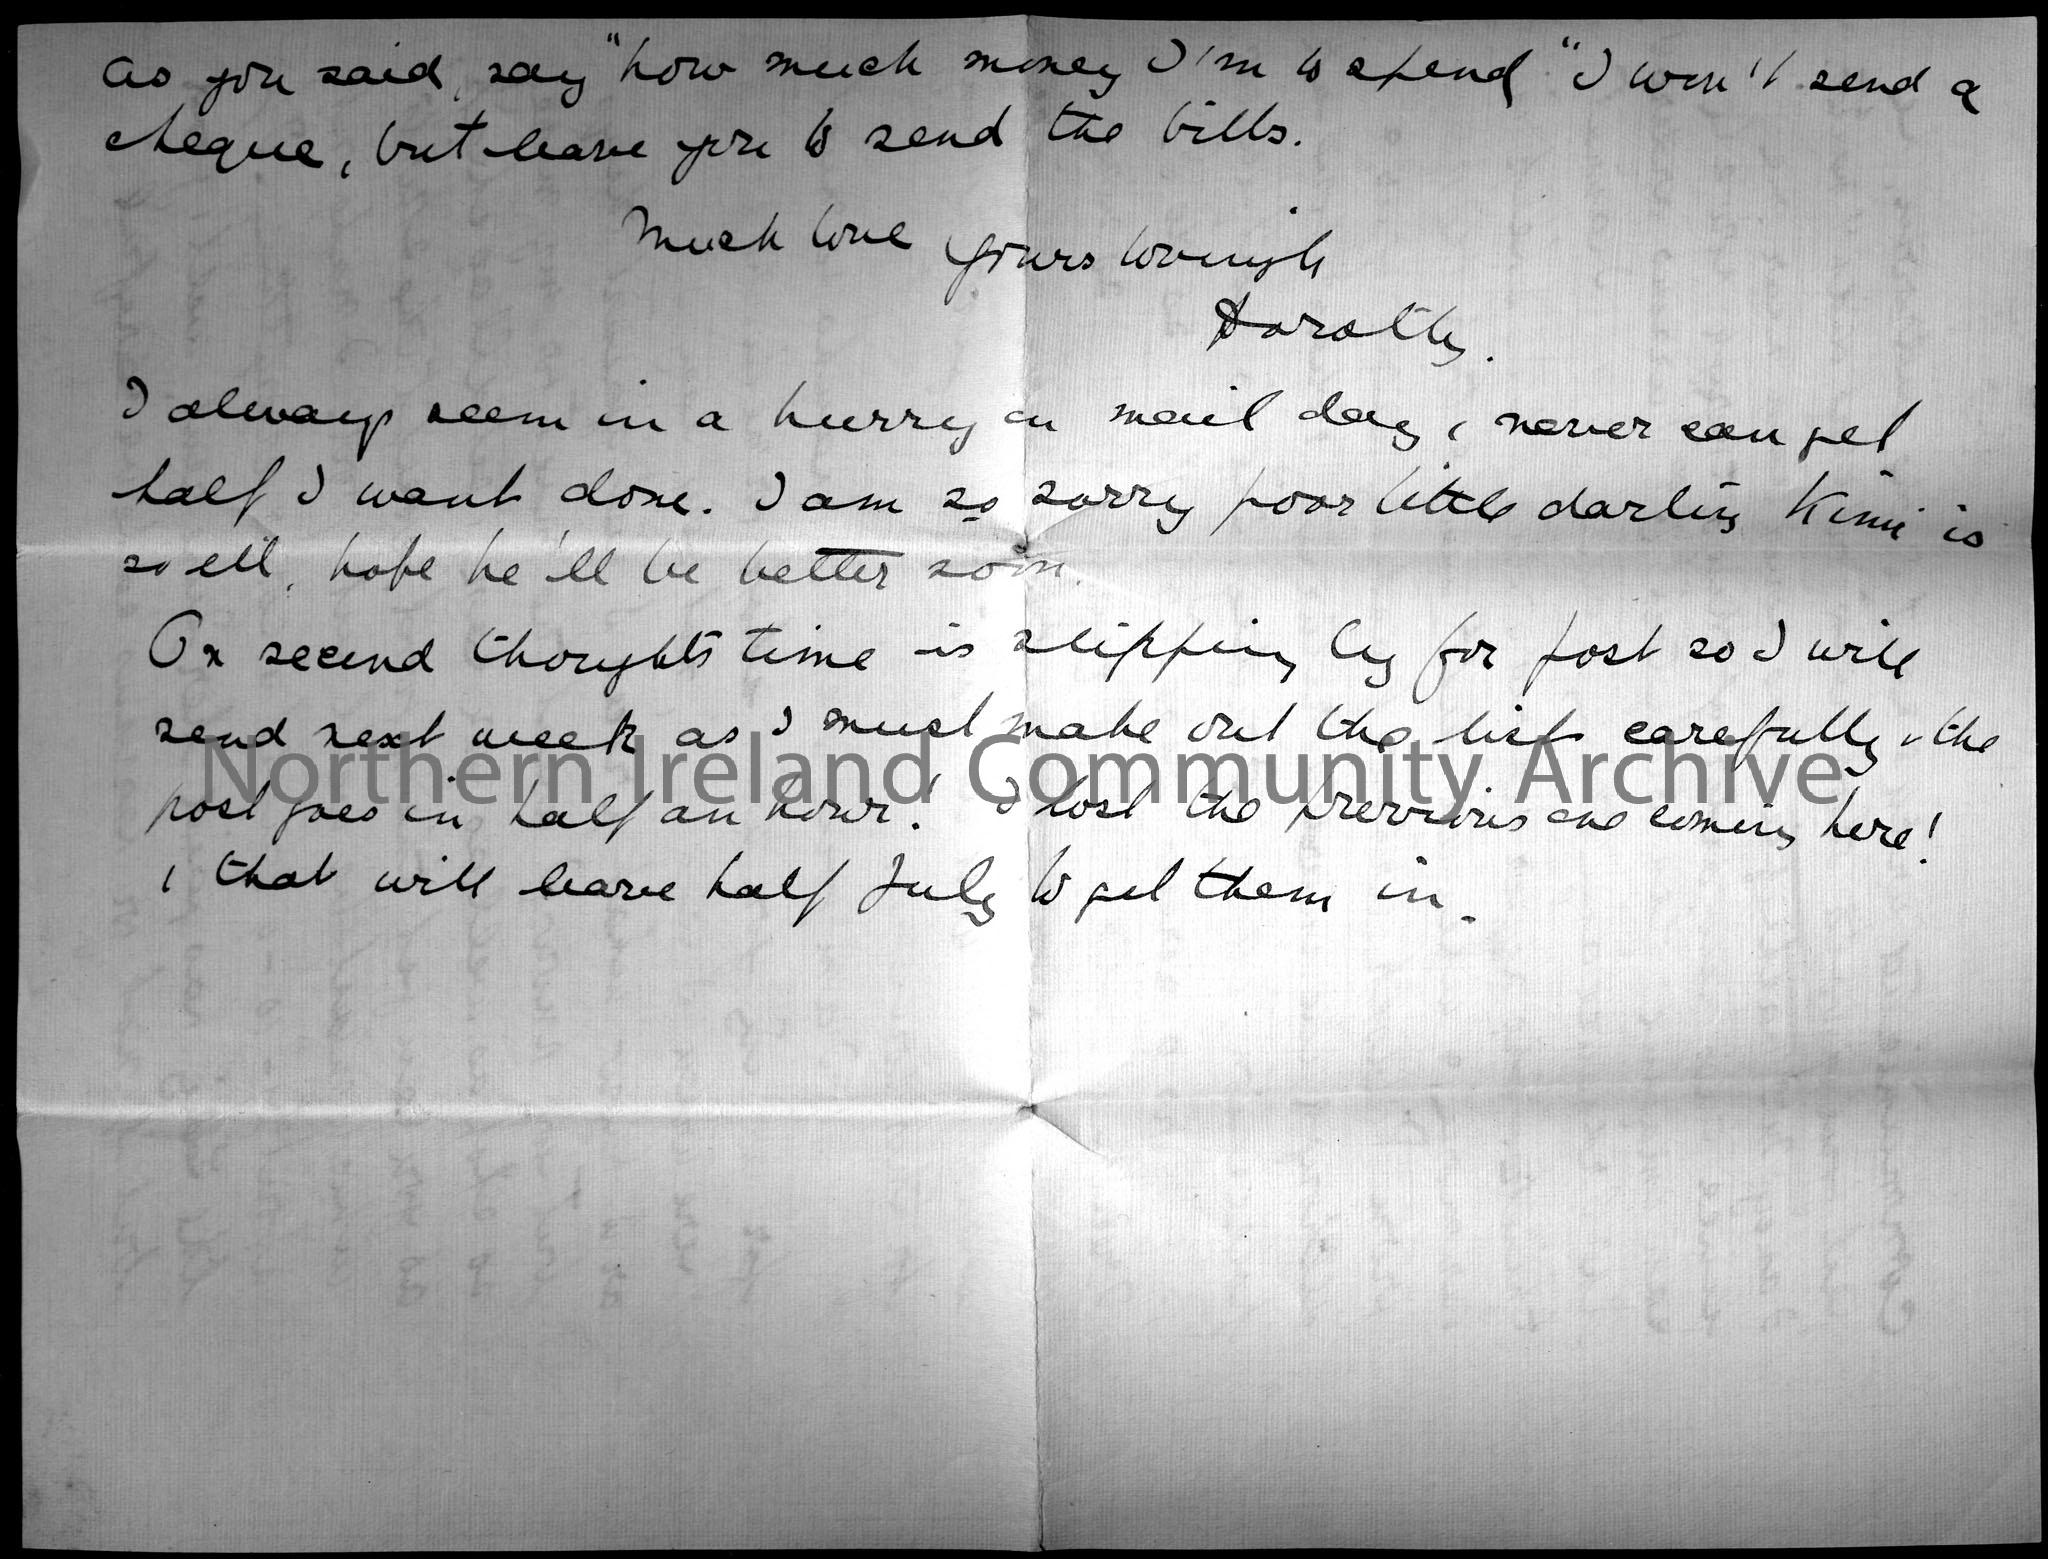 as you said, say "how much money I'm to spend" I won't send a
cheque, but leave you to send the bills.
Much love yours lovingly
Dorothy.
I always seem in a hurry on mail day, & never can get
half I want done. I am so sorry poor little darling Kimi is
so ill, hope he'll be better soon.
On second thoughts time is slipping by for post so I will
send next week as I must make out the list carefully & the
Northern Ireland Community Archive
post goes in half an hour! I lost the previous one coming here!
& that will leave half July to get them in.